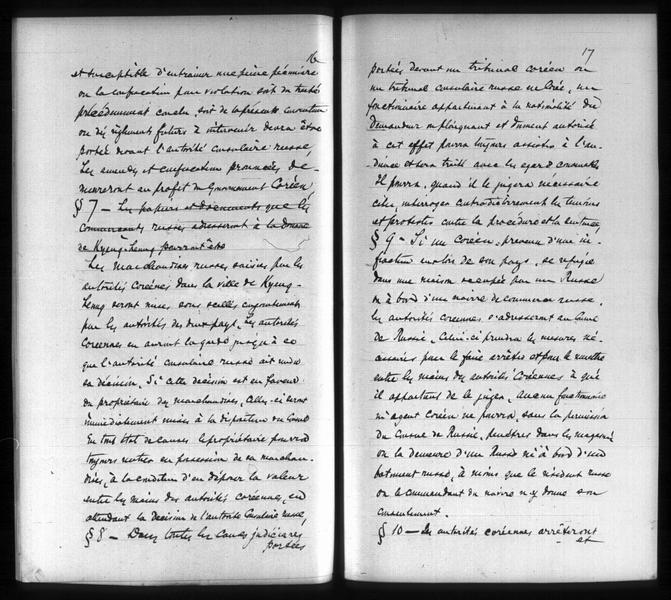 16
et susceptible d'entraîner une peine pécuniaire
ou la confiscation pour violation soit du traité
précédemment conclu, soit de la présente convention
ou des règlements futurs à intervenir devra être
portée devant l'autorité consulaire russe,
Les amendes et confiscations prononcées de-
meureront au profit du Gouvernement Coréen,
§ 7 — Les papiers et documents que les
commercants russes adresseront à la Douane
de Kyeng-heung pourront être
Les marchandises russes saisies par les
autorités coréennes dans la ville de Kyeng-
heung seront mises sous scellés conjointement
par les autorités des deux pays, les autorités
Coréennes en auront la garde jusqu'à ce
que l'autorité consulaire russe ait rendu
sa décision. Si cette décision est en faveur
du propriétaire des marchandises, celles-ci seront
immédiatement mises à la disposition du Consul
En tout état de cause le propriétaire pourra
toujours rentrer en possession de sa marchan-
dise, à la condition d'en déposer la valeur
entre les mains des autorités coréennes, en
attendant la décision de l'autorité Consulaire russe,
§ 8 — Dans toutes les causes judiciaires
portées
17
portées devant un tribunal coréen ou
un tribunal consulaire russe en Corée, un
fonctionnaire appartenant à la nationalité du
Demandeur ou plaignant et dûment autorisé
à cet effet pourra toujours assister à l'au-
dience et sera traité avec les égards convenables
Il pourra, quand il le jugera nécessaire
citer, interroger contradictoirement les témoins
et protester contre la procédure et la sentence
§ 9 — Si un Coréen, prévenu d'une in-
fraction aux lois de son pays, se réfugie
dans une maison occupée par un Russe
ou à bord d'un navire de commerce russe,
les autorités coréennes s'adresseront au Consul
de Russie. Celui-ci prendra les mesures né-
cessaires pour le faire arrêter et pour le remettre
entre les mains des autorités Coréennes à qui
il appartient de le juger, aucun fonctionnaire
ni agent Coréen ne pourra, sans la permission
du Consul de Russie, pénétrer dans les magasins
ou la demeure d'un Russe ni à bord d'un
bâtiment russe, à moins que le résident russe
ou le commandant du navire n'y donne son
consentement.
§ 10 — Les autorités coréennes arrêteront
et